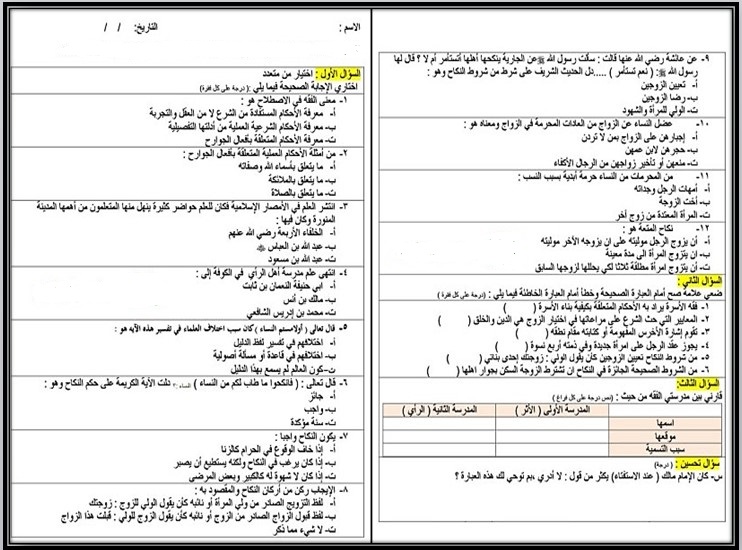 الاسم :                    التاريخ:   /   /
السؤال الأول : اختيار من متعدد
اختاري الإجابة الصحيحة فيما يلي : ( درجة على كل فقرة)
١- معنى الفقه في الاصطلاح هو :
أ- معرفة الأحكام المستفادة من الشرع لا من العقل والتجربة
ب- معرفة الأحكام الشرعية العملية من أدلتها التفصيلية
ت- معرفة الأحكام المتعلقة بأفعال الجوارح
٢- من أمثلة الأحكام العملية المتعلقة بأفعال الجوارح :
أ- ما يتعلق بأسماء الله وصفاته
ب- ما يتعلق بالملائكة
ت- ما يتعلق بالصلاة
٣- انتشر العلم في الأمصار الإسلامية فكان للعلم حواضر كثيرة ينهل منها المتعلمون من أهمها المدينة
المنورة وكان فيها :
أ- الخلفاء الأربعة رضي الله عنهم
ب- عبد الله بن العباس ﷺ
ت- عبد الله بن مسعود
٤- انتهى علم مدرسة أهل الرأي في الكوفة إلى :
أ- ابي حنيفة النعمان بن ثابت
ب- مالك بن أنس
ت- محمد بن إدريس الشافعي
٥- قال تعالى ( أولامستم النساء ) كان سبب اختلاف العلماء في تفسير هذه الآيه هو :
أ- اختلافهم في تفسير لفظ الدليل
ب- اختلافهم في قاعدة أو مسألة أصولية
ت- كون العالم لم يسمع بهذا الدليل
٦- قال تعالى : ( فانكحوا ما طاب لكم من النساء ) النساء :٣ دلت الآية الكريمة على حكم النكاح وهو :
أ- جائز
ب- واجب
ت- سنة مؤكدة
٧- يكون النكاح واجبا :
أ- إذا خاف الوقوع في الحرام كالزنا
ب- إذا كان يرغب في النكاح ولكنه يستطيع أن يصبر
ت- إذا كان لا شهوة له كالكبير وبعض المرضى
٨- الإيجاب ركن من أركان النكاح والمقصود به :
أ- لفظ التزويج الصادر من ولي المرأة أو نائبه كأن يقول الولي للزوج : زوجتك
ب- لفظ قبول الزواج الصادر من الزوج أو نائبه كأن يقول الزوج للولي : قبلت هذا الزواج
ت- لا شيء مما ذكر
٩- عن عائشة رضي الله عنها قالت : سألت رسول الله ﷺ عن الجارية ينكحها أهلها أتستأمر أم لا ؟ قال لها
رسول الله ﷺ: ( نعم تستأمر ) .....دل الحديث الشريف على شرط من شروط النكاح وهو :
أ- تعيين الزوجين
ب- رضا الزوجين
ت- الولي للمرأة والشهود
١٠- عضل النساء عن الزواج من العادات المحرمة في الزواج ومعناه هو :
أ- إجبارهن على الزواج بمن لا تردن
ب- حجرهن لابن عمهن
ت- منعهن أو تأخير زواجهن من الرجال الأكفاء
١١- من المحرمات من النساء حرمة أبدية بسبب النسب :
أ- أمهات الرجل وجداته
ب- أخت الزوجة
ت- المرأة المعتدة من زوج آخر
١٢- نكاح المتعة هو :
أ- أن يزوج الرجل موليته على ان يزوجه الآخر موليته
ب- ان يتزوج المرأة الى مدة معينة
ت- أن يتزوج امرأة مطلقة ثلاثا لكي يحللها لزوجها السابق
السؤال الثاني :
ضعي علامة صح أمام العبارة الصحيحة وخطأ أمام العبارة الخاطئة فيما يلي : (درجة على كل فقرة )
١- فقه الأسرة يراد به الأحكام المتعلقة بكيفية بناء الأسرة (        )
٢- المعايير التي حث الشرع على مراعاتها في اختيار الزوج هي الدين والخلق (        )
٣- تقوم إشارة الأخرس المفهومة أو كتابته مقام نطقه (        )
٤- يجوز عقد الرجل على امرأة جديدة وفي ذمته أربع نسوة (        )
٥- من شروط النكاح تعيين الزوجين كأن يقول الولي : زوجتك إحدى بناتي (        )
٦- من الشروط الصحيحة الجائزة في النكاح ان تشترط الزوجة السكن بجوار اهلها (        )
السؤال الثالث:
قارني بين مدرستي الفقه من حيث : (نص درجة على كل فراغ )
المدرسة الأولى ( الأثر )   المدرسة الثانية ( الرأي )
اسمها
موقعها
سبب التسمية
سؤال تحسين : ( درجة)
س- كان الإمام مالك ( عند الاستفتاء) يكثر من قول : لا أدري ،بم توحي لك هذه العبارة ؟